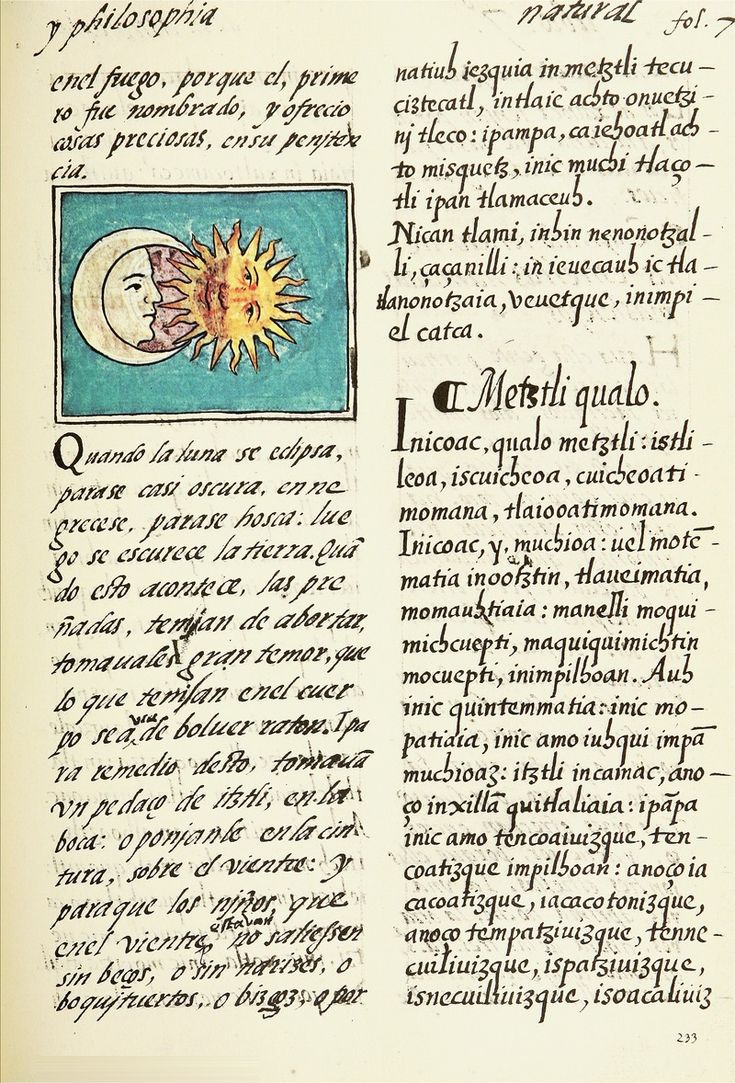 y philosophia
natural
fol. 7
enel fuego, porque el, prime
ro fue nombrado, y ofrecio
cosas preciosas, ensu penjten
cia.
Quando la luna se eclipsa,
parase casi oscura, enne
grecese, parase hosca: lue
go se escurece la tierra. Quã
do esto acontece, las pre
ñadas, temjan de abortar,
tomauales gran temor, que
lo que temjan enel cuer
po se auia de boluer raton. I pa
ra remedio desto, tomauã
vn pedaço de itztli, en la
boca: o ponjanle en la cin
tura, sobre el vientre: y
para que los njños, que
enel vientre estauan, no saliessen
sin beços, o sin narizes, o
boquituertos, o bizcos, o por
natiuh iezquia in metztli tecu –
ciztecatl, intlaic achto onuetzi –
nj tleco: ipampa, ca iehoatl ach –
to misquetz, inic muchi tlaço –
tli ipan tlamaceuh.
Nican tlami, inhin nenonotzal –
li, çaçanilli: in ieuecauh ic tla –
tlanonotzaia, veuetque, inimpi –
el catca.
¶ Metztli qualo.
Inicoac, qualo metztli: istli –
leoa, iscuicheoa, cuicheoati –
momana, tlaiooatimomana.
Inicoac, y, muchioa: uel motẽ –
matia inootztin, tlaueimatia,
momauhtiaia: manelli moqui –
michcuepti, maquiquimichtin
mocuepti, inimpilhoan. Auh
inic quintemmatia: inic mo –
patiaia, inic amo iuhqui impã
muchioaz: itztli incamac, ano –
ço inxillã quitlaliaia: ipãpa
inic amo tencoaiuizque, ten –
coatizque impilhoan: anoço ia
cacoatizque, iacacotonizque,
anoço tempatziuizque, tenne –
cuiliuizque, ispatziuizque,
isnecuiliuizque, isoacaliuiz
233